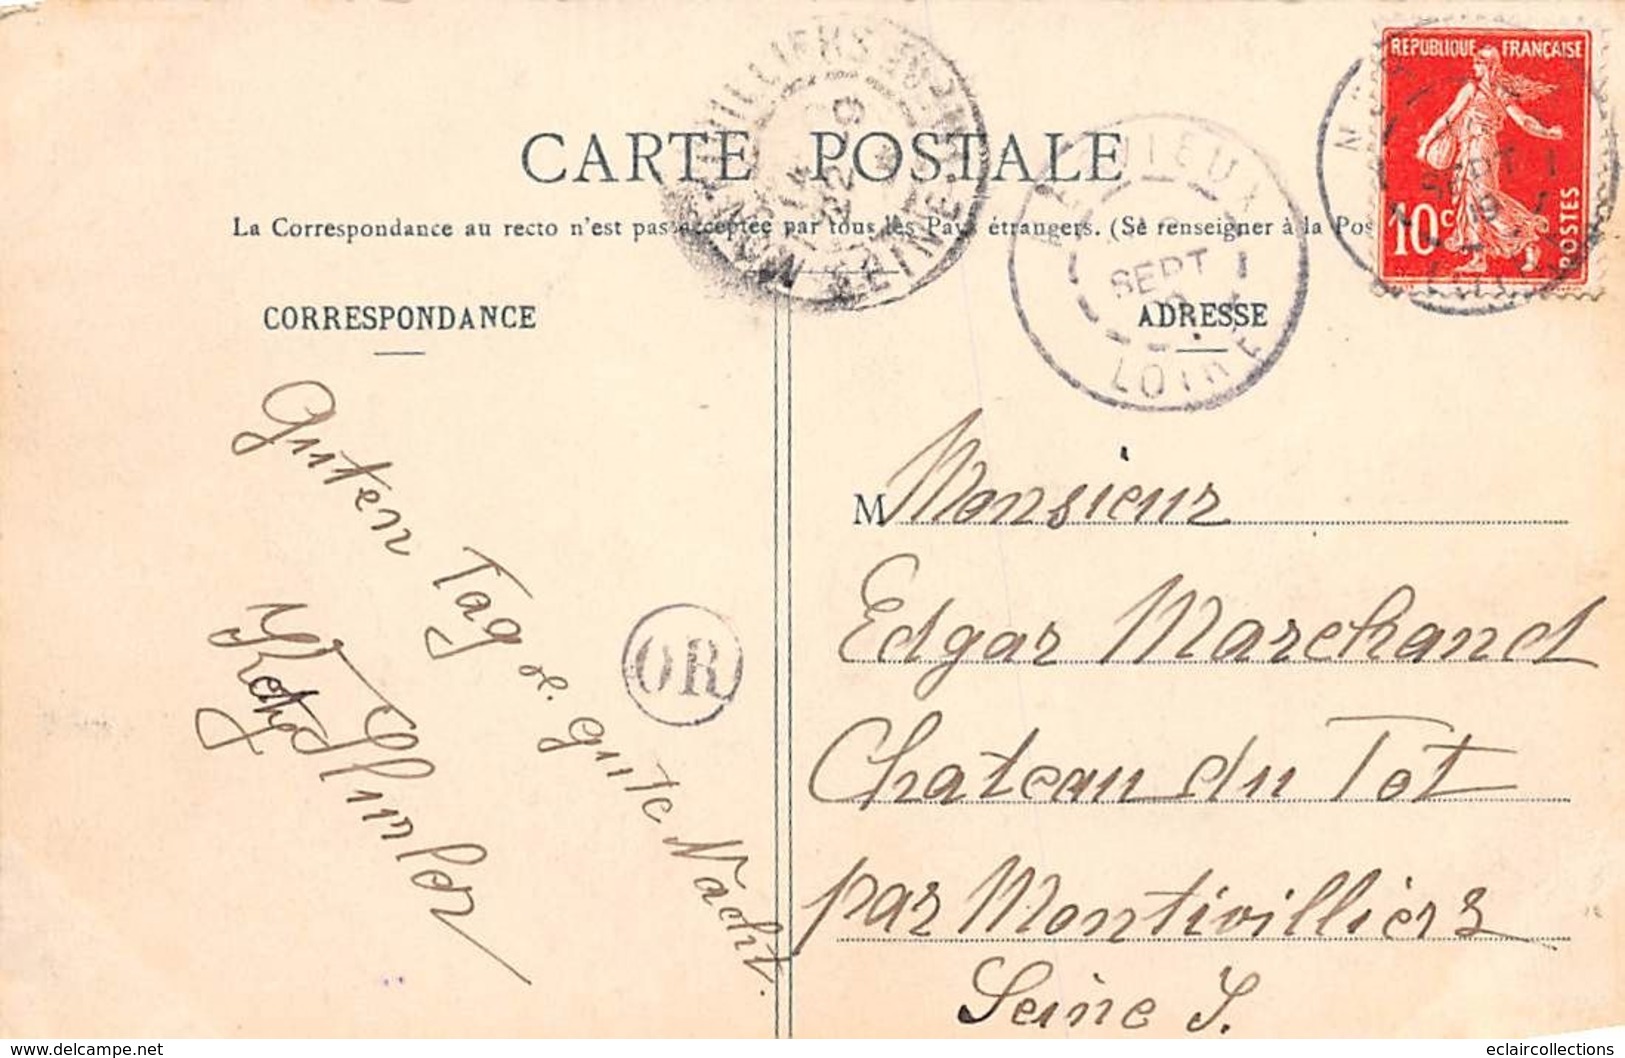 CARTE POSTALE
La Correspondance au recto n'est pas acceptée par tous les Pays étrangers. (Se renseigner à la Pos
REPUBLIQUE FRANÇAISE
10c
POSTES
SEPT
LOIRE
SEPT
CORRESPONDANCE
ADRESSE
Guten Tag
u. gute Nacht.
OR
M Monsieur
Edgar Marchand
Chateau du Tot
par Montivilliers
Seine I.
delcampe.net
eclaircollections